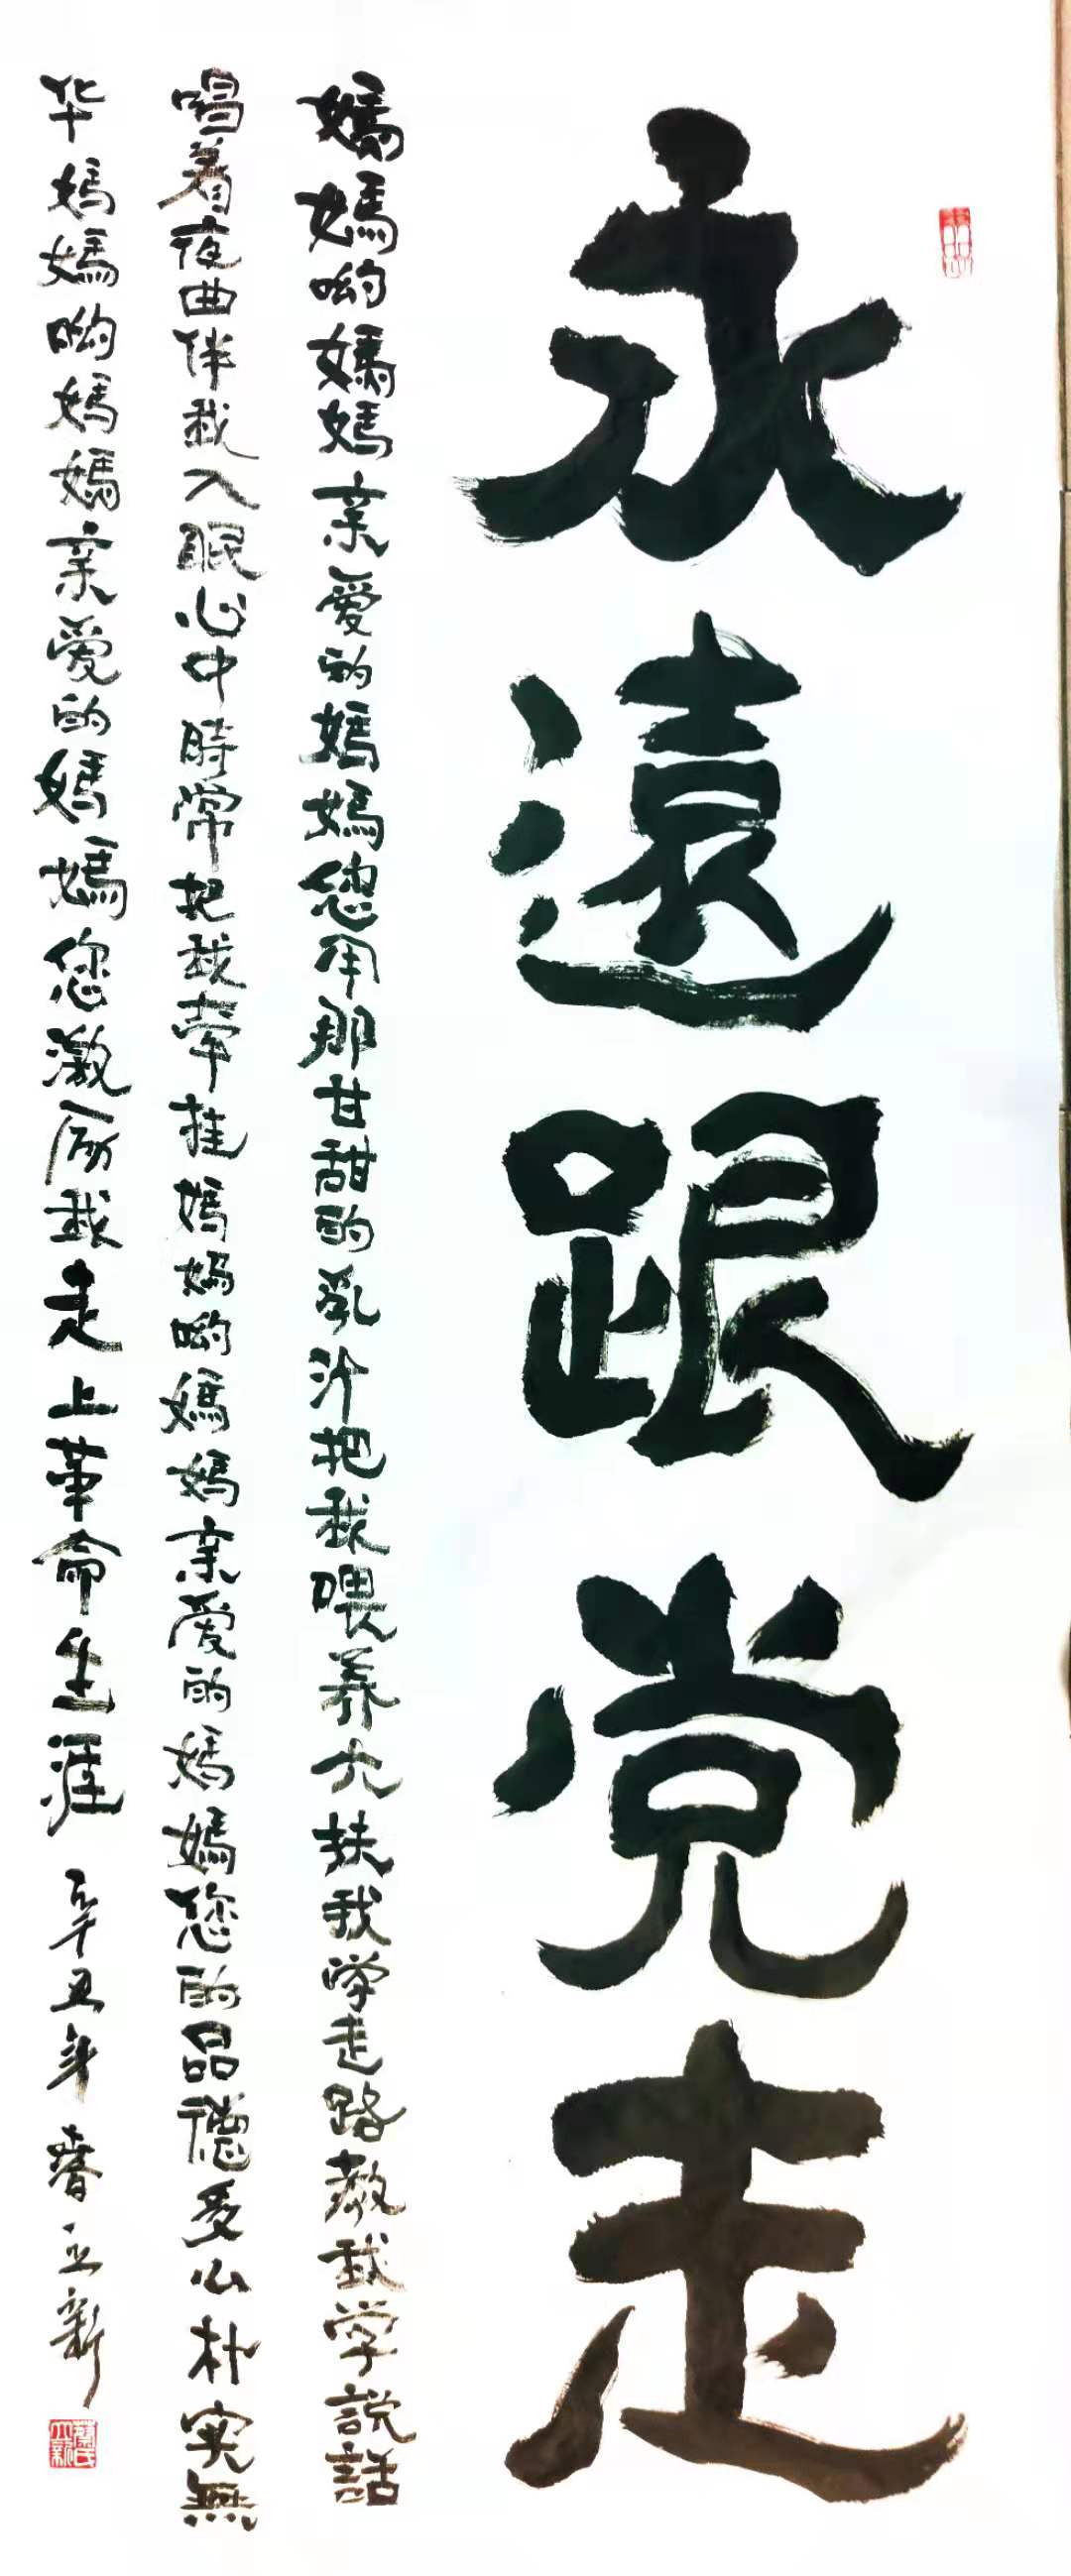 永遠跟党走
媽媽哟媽媽亲爱的媽媽您用那甘甜的乳汁把我喂养大扶我学走路教我学説話
唱着夜曲伴我入眠心中時常把我牵挂媽媽哟媽媽亲爱的媽媽您的品德多么朴实無
华媽媽哟媽媽亲爱的媽媽您激励我走上革命生涯 辛丑年春立新